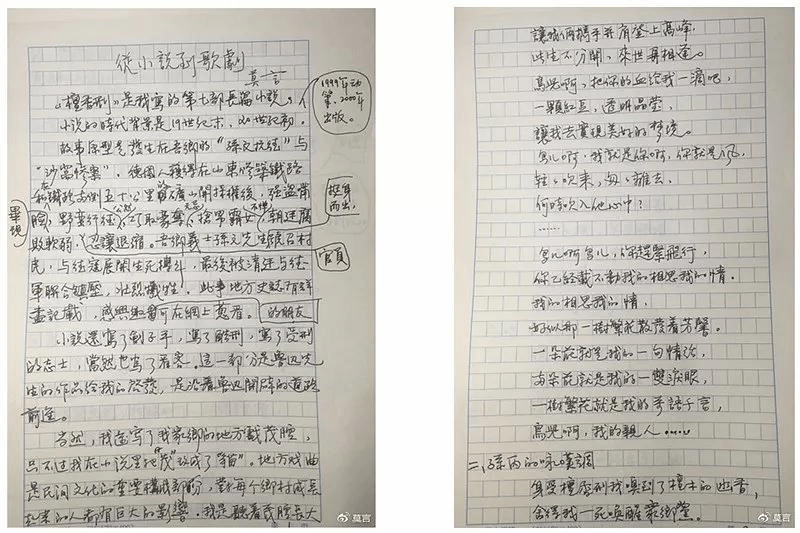 從小説到歌劇
莫言
《檀香刑》是我寫的第七部長篇小説。
1999年动
筆,2000年
出版。
小説的時代背景是19世紀末,20世紀初。
故事原型是發生在吾鄉的“孫文抗德”與
“沙窩慘案”。德國人獲得在山東修築鐵路
和鐵路两側五十公里的礦山開採權後,强盜嘴
畢現
臉,野蛮行徑,公然巧取豪奪,搶男霸女,朝廷腐
挺身
而出,
敗軟弱,忍讓退縮。吾鄉義士孫文先生號召村
官員
民,與德寇展開生死搏斗,最後被清廷与德
軍聯合鎮壓,壯烈犧牲。此事地方史誌有詳
盡記載,感興趣者可在網上查看。
的朋友
小説還寫了劊子手,寫了酷刑,寫了受刑
的志士,當然也寫了看客。這一部分是魯迅先
生的作品給我的啓發,是沿着魯迅開闢的道路
前進。
當然,我還寫了我家鄉的地方戲茂腔,
只不過我在小説里把“茂”改成了“猫”。地方戲曲
是民间文化的重要構成部份,對每個鄉村成長
起來的人都有巨大的影響。我是聽着茂腔長大
讓我们携手并肩登上高峰,
此生不分開,來世再相逢。
鳥兒啊,把你的血給我一滴吧,
一顆紅豆,透明晶莹,
讓我去實現美好的梦境。
鳥儿啊,我就是你啊,你就是风,
輕輕吹来,匆匆離去,
何時吹入他心中?
……
鳥儿啊鳥儿,你趕緊飛行,
你已經載不動我的相思我的情。
我的相思我的情,
好似那一樹繁花散發着芳馨。
一朵花就是我的一句情話,
两朵花就是我的一雙淚眼,
一樹繁花就是我的千語千言,
鳥兒啊,我的親人……
二、孫丙的咏嘆調
身受檀香刑我嗅到了檀木的幽香,
舍得我一死喚醒衆鄉黨。
莫言
莫言